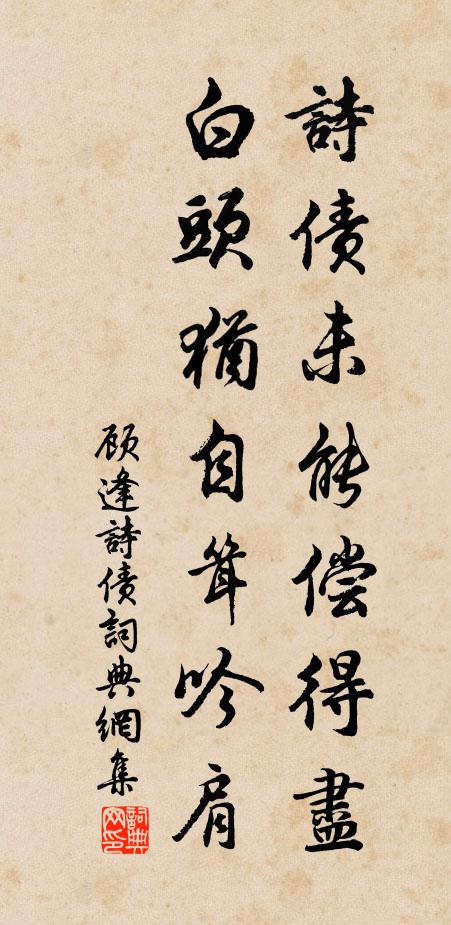 詩債未能偿得盡
白頭猶自耸吟肩
顾逢詩債詞典網集
詞典网印